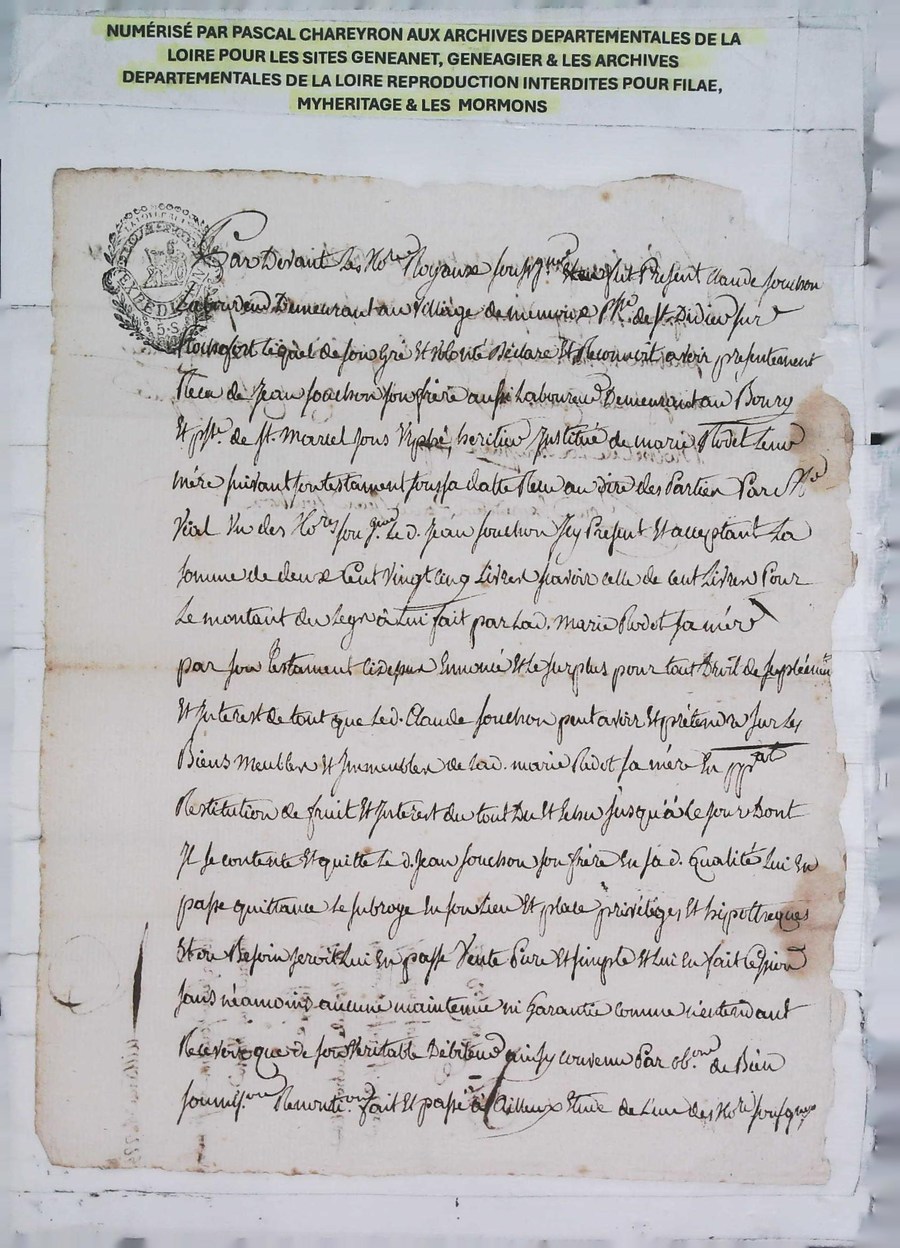 NUMÉRISÉ PAR PASCAL CHAREYRON AUX ARCHIVES DEPARTEMENTALES DE LA
LOIRE POUR LES SITES GENEANET, GENEAGIER & LES ARCHIVES
DEPARTEMENTALES DE LA LOIRE REPRODUCTION INTERDITES POUR FILAE,
MYHERITAGE & LES MORMONS
Par Devant Les No.res Royaux sousig.nés fut Présent Claude souchon
Laboureur Demeurant au Village de P.sse de st. Didier sur
Rochefort lequel de son Gré Et Volonté Déclare Et Reconnoit avoir présentement
Reçu de Jean souchon son frère aussi Laboureur Demeurant au Bourg
Et p.sse de st. Martel sous heritier Institué de marie Rodet Leur
mére suivant son testament sous sa datte Reçu au dire des Parties Par M.e
Vial Un des No.res sousig.nés Le d. Jean souchon Icy Présent Et acceptant La
somme de deux Cent vingt cinq Livres scavoir celle de cent Livres Pour
Le montant du Legs à Lui fait par La d. marie Rodet sa mére
par son Testament cidessus Ennoncé Et le surplus pour tout Droit de suplément
Et Interest de tout que Le d. Claude souchon peut avoir Et prétendre sur Les
Biens Meubles Et Immeubles de La d. marie Rodet sa mére En
Restitution de fruit Et Interest du tout Du Et Echu jusqu'à ce jour Dont
Il se contente Et quitte Le d. Jean souchon son frère En sa d. Qualité Lui En
passe quittance Le subroge En son Lieu Et place priviléges Et hipotheques
Et ou Besoin seroit Lui En passe Vente Pure Et simple Et Lui En fait Cession
sans néamoins aucune maintenue ni Garantie comme n'entendant
Recevoir que de son Veritable Débiteur ainsy convenu Par ob.on de Biens
soumis.ons Renontia.ons fait Et passé à Ailleux Etude de L'un des No.res sousignés